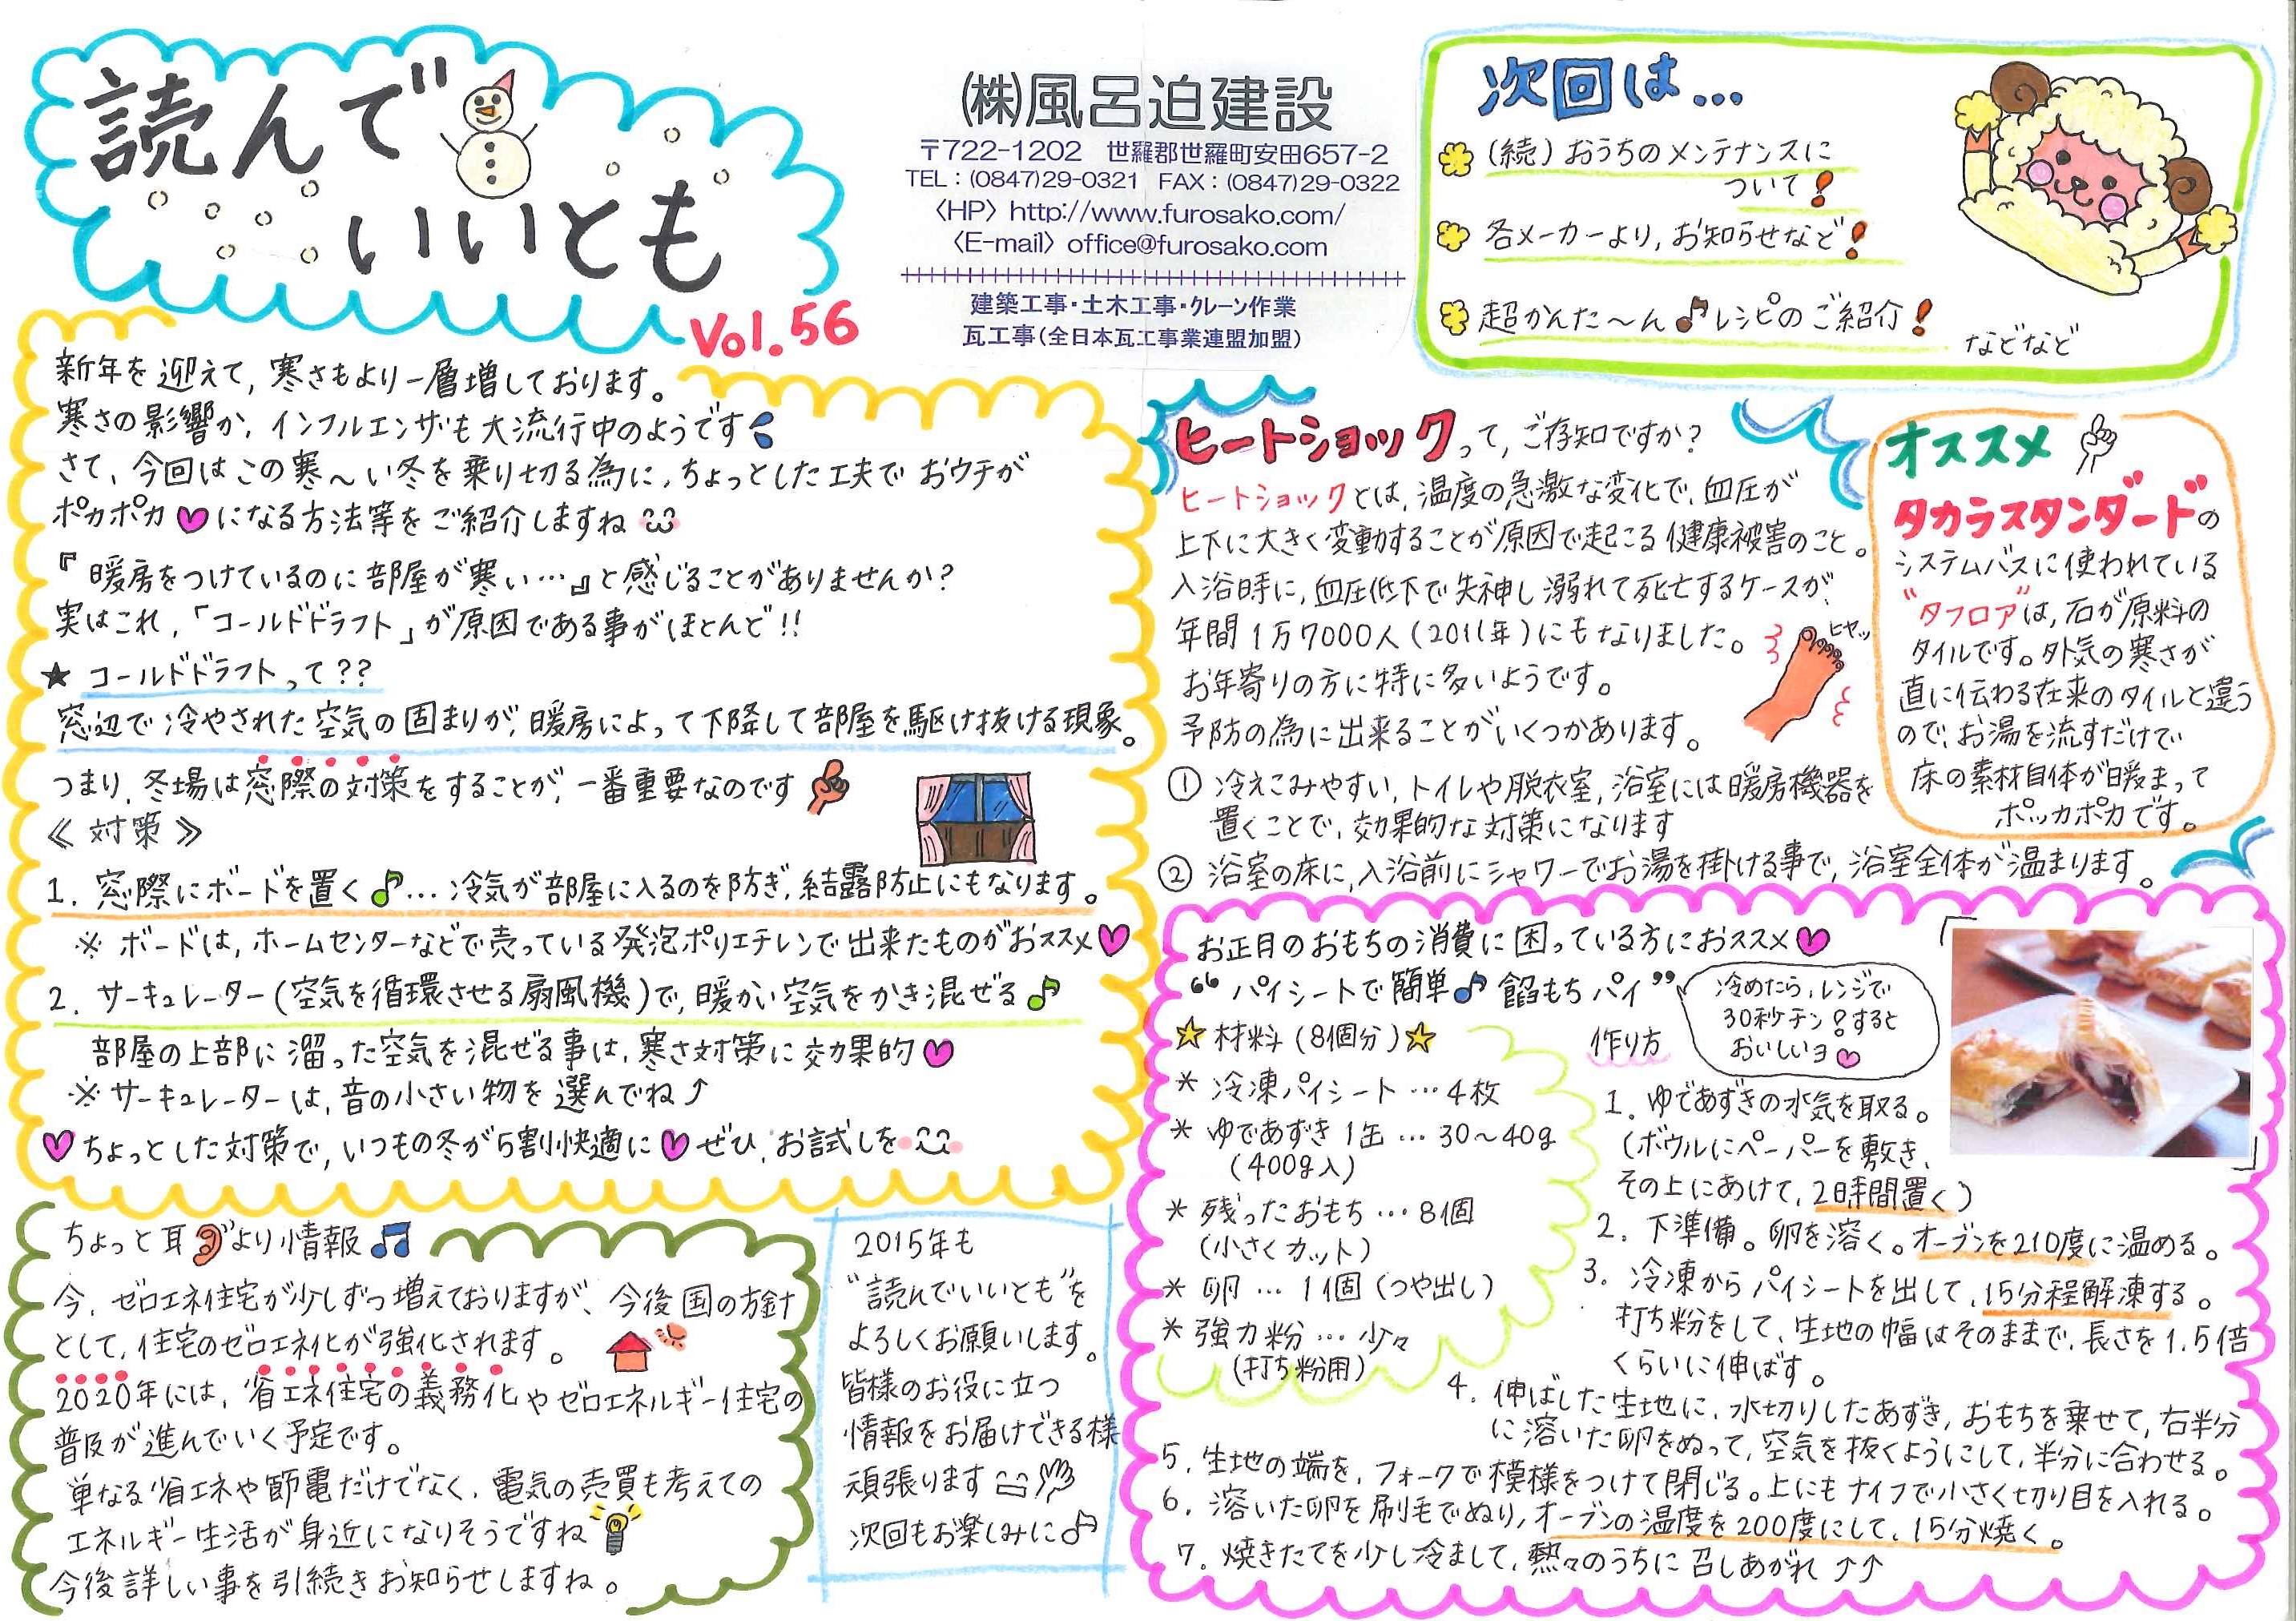 読んで
いいとも
Vol.56
㈱風呂迫建設
〒722-1202 世羅郡世羅町安田657-2
TEL：(0847)29-0321 FAX：(0847)29-0322
〈HP〉http://www.furosako.com/
〈E-mail〉office@furosako.com
建築工事・土木工事・クレーン作業
瓦工事(全日本瓦工事業連盟加盟)
次回は…
(続)おうちのメンテナンスに
ついて!
各メーカーより,お知らせなど!
超かんた〜ん♪レシピのご紹介!
などなど
新年を迎えて,寒さもより一層増しております。
寒さの影響か,インフルエンザも大流行中のようです
さて、今回はこの寒〜い冬を乗り切る為に,ちょっとした工夫でおウチが
ポカポカ♥になる方法等をご紹介しますね
『暖房をつけているのに部屋が寒い…』と感じることがありませんか?
実はこれ,「コールドドラフト」が原因である事がほとんど!!
★ コールドドラフトって??
窓辺で冷やされた空気の固まりが,暖房によって下降して部屋を駆け抜ける現象。
つまり,冬場は窓際の対策をすることが,一番重要なのです
≪対策≫
1. 窓際にボードを置く♪…冷気が部屋に入るのを防ぎ,結露防止にもなります。
※ ボードは,ホームセンターなどで売っている発泡ポリエチレンで出来たものがおススメ♥
2. サーキュレーター(空気を循環させる扇風機)で,暖かい空気をかき混ぜる♪
部屋の上部に溜った空気を混ぜる事は,寒さ対策に効果的♥
※サーキュレーターは,音の小さい物を選んでね⤴
♥ちょっとした対策で,いつもの冬が5割快適に♥ぜひ,お試しを
ヒートショックって,ご存知ですか?
ヒートショックとは,温度の急激な変化で,血圧が
上下に大きく変動することが原因で起こる健康被害のこと。
入浴時に,血圧低下で失神し溺れて死亡するケースが,
年間1万7000人(2011年)にもなりました。
ヒヤッ
お年寄りの方に特に多いようです。
予防の為に出来ることがいくつかあります。
① 冷えこみやすい,トイレや脱衣室,浴室には暖房機器を
置くことで,効果的な対策になります
② 浴室の床に,入浴前にシャワーでお湯を掛ける事で,浴室全体が温まります。
オススメ
タカラスタンダードの
システムバスに使われている
"タフロア"は,石が原料の
タイルです。外気の寒さが
直に伝わる在来のタイルと違う
ので,お湯を流すだけで
床の素材自体が暖まって
ポッカポカです。
お正月のおもちの消費に困っている方におススメ♥
“パイシートで簡単♪餡もちパイ”
冷めたら,レンジで
30秒チン!すると
おいしいヨ♥
☆材料(8個分)☆
* 冷凍パイシート…4枚
* ゆであずき1缶…30〜40g
(400g入)
* 残ったおもち…8個
(小さくカット)
* 卵…1個(つや出し)
* 強力粉…少々
(打ち粉用)
作り方
1. ゆであずきの水気を取る。
(ボウルにペーパーを敷き,
その上にあけて,2時間置く)
2. 下準備。卵を溶く。オーブンを210度に温める。
3. 冷凍からパイシートを出して,15分程解凍する。
打ち粉をして,生地の幅はそのままで,長さを1.5倍
くらいに伸ばす。
4. 伸ばした生地に,水切りしたあずき,おもちを乗せて,右半分
に溶いた卵をぬって,空気を抜くようにして,半分に合わせる。
5. 生地の端を,フォークで模様をつけて閉じる。上にもナイフで小さく切り目を入れる。
6. 溶いた卵を刷毛でぬり,オーブンの温度を200度にして,15分焼く。
7. 焼きたてを少し冷まして,熱々のうちに召しあがれ⤴⤴
ちょっと耳より情報♫
今,ゼロエネ住宅が少しずつ増えておりますが、今後国の方針
として,住宅のゼロエネ化が強化されます。
2020年には,省エネ住宅の義務化やゼロエネルギー住宅の
普及が進んでいく予定です。
単なる省エネや節電だけでなく,電気の売買も考えての
エネルギー生活が身近になりそうですね
今後詳しい事を引続きお知らせしますね。
2015年も
"読んでいいとも"を
よろしくお願いします。
皆様のお役に立つ
情報をお届けできる様
頑張ります
次回もお楽しみに♪